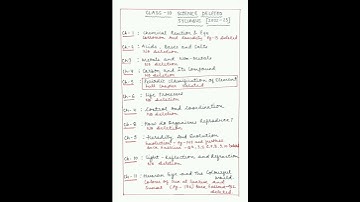 CLASS-10 SCIENCE DELETED
SYLLABUS [2022-23]
Ch-1 : Chemical Reaction & Eqn
Corrosion and Rancidity Pg-13 deleted
Ch-2 : Acids, Bases and Salts
No deletion
Ch-3 Metals and Non-Metals
No deletion
Ch-4 Carbon and Its Compound
No deletion
Ch-5 Periodic Classification of Element
Full Chapter Deleted
Ch-6 : Life Processes
No deletion
Ch-7 : Control and Coordination
No deletion
Ch-8 : How do Organisms Reproduce?
No deletion
Ch-9 : Heredity and Evolution
Evolution - Pg and further
Back Exercise
Ch-10 : Light - Reflection and Refraction
No deletion
Ch-11 : Human Eye and the Colourful World
Colour of Sun at Sunrise and
Sunset (Pg - ) Back Exercise
deleted